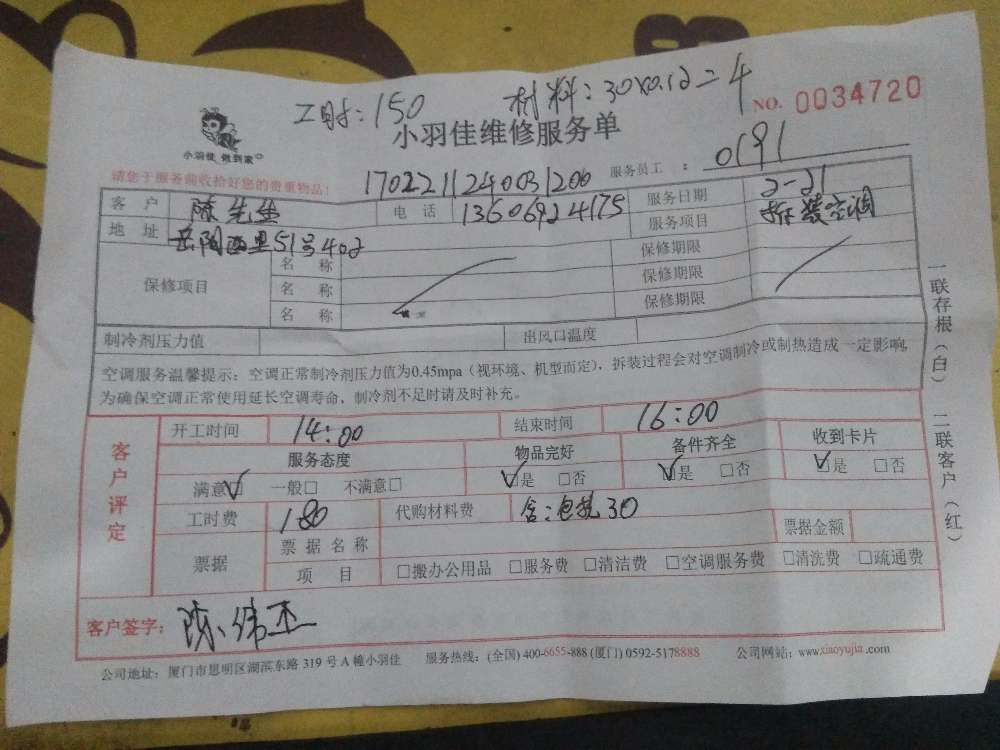 工时:150 材料:30×0.12=4
NO. 0034720
小羽佳 做到家
小羽佳维修服务单
请您于服务前收拾好您的贵重物品! 1702211240031200 服务员工: 0191
客户 陈先生 电话 13606924175 服务日期 2-21
地址 岳阳西里51号402 服务项目 拆装空调
保修项目 名称 保修期限
名称 保修期限
名称 保修期限
制冷剂压力值 出风口温度
空调服务温馨提示:空调正常制冷剂压力值为0.45mpa(视环境、机型而定),拆装过程会对空调制冷或制热造成一定影响,
为确保空调正常使用延长空调寿命,制冷剂不足时请及时补充。
客户评定
开工时间 14:00 结束时间 16:00
服务态度 物品完好 备件齐全 收到卡片
满意☑ 一般□ 不满意□ ☑是 □否 ☑是 □否 ☑是 □否
工时费 180 代购材料费 含:包扎30
票据 票据名称 票据金额
项目 □搬办公用品 □服务费 □清洁费 □空调服务费 □清洗费 □疏通费
客户签字: 陈伟丕
公司地址:厦门市思明区湖滨东路319号A幢小羽佳 服务热线:(全国)400-6655-888(厦门)0592-5178888 公司网站:www.xiaoyujia.com
一联存根(白) 二联客户(红)